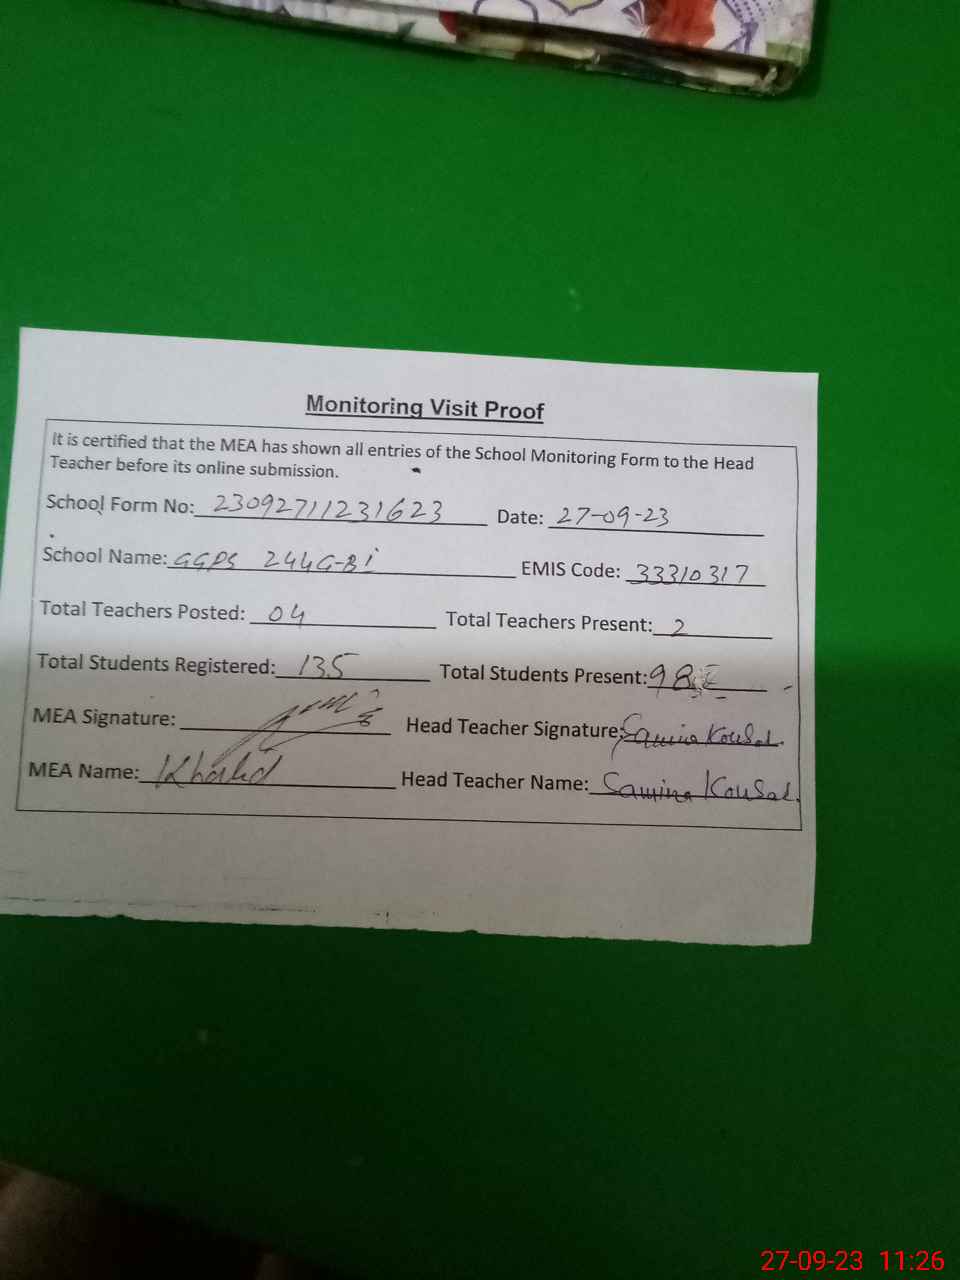 Monitoring Visit Proof
It is certified that the MEA has shown all entries of the School Monitoring Form to the Head
Teacher before its online submission.
School Form No: 23092711231623 Date: 27-09-23
School Name: GGPS 244G-B i EMIS Code: 33310317
Total Teachers Posted: 04 Total Teachers Present: 2
Total Students Registered: 135 Total Students Present: 98
MEA Signature: Head Teacher Signature: Samina Kousar
MEA Name: Khalid Head Teacher Name: Samina Kousar
27-09-23 11:26